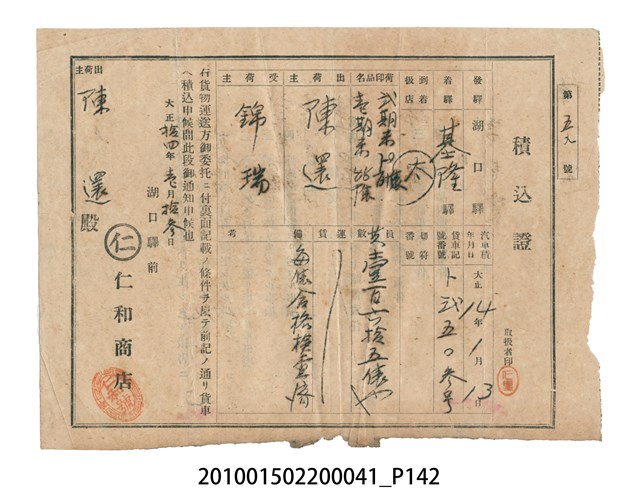 第 五九 號
積込證
取扱者印
發驛 湖口驛
汽車積年月日 大正 14年 1月 13日
着驛 基隆
貨車記號番號 ト弐五〇参号
到着扱店 太
切符番號
荷印品名 弐期米
壱期米
員數 共壹百六拾五俵也
出荷主 陳還
運賃
受荷主 錦瑞
備考 每俵合格檢查済
右貨物運送方御委托ニ付裏面記載ノ條件ヲ以テ前記ノ通リ貨車
ヘ積込申候間此段御通知申候也
大正拾四年壱月拾参日
湖口驛前
仁 仁和商店
出荷主 陳還殿
201001502200041_P142